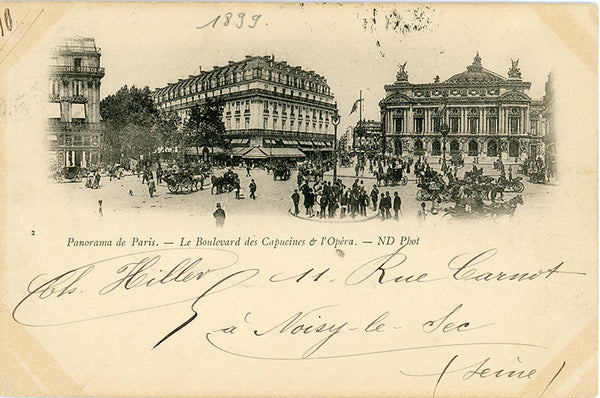 1899.
2
Panorama de Paris. — Le Boulevard des Capucines & l'Opéra. — ND Phot
Ch. Hiller 11 Rue Carnot
à Noisy-le-Sec
(Seine)